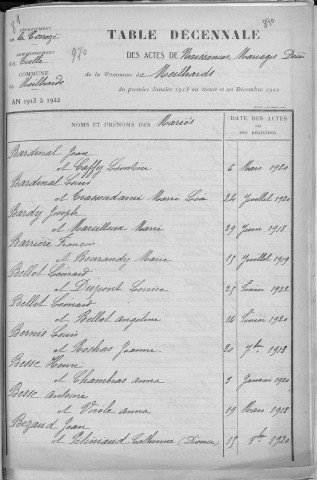 81
890
DÉPARTEMENT
de la Corrèze
ARRONDISSEMENT
de Tulle
COMMUNE
de Meilhards
AN 1913 à 1922
970
TABLE DÉCENNALE
DES ACTES DE Naissances, Mariages, Décès
de la Commune de Meilhards
du premier Janvier 1913 au trente et un Décembre 1922
NOMS ET PRÉNOMS DES Mariés
DATE DES ACTES
OU
DES REGISTRES
Bardenat Jean
et Caffy Léontine 6 Mars 1920
Bardenat Louis
et Marie 24 Juillet 1920
Bardy Joseph
et Marie 29 Juin 1918
Barrière François
et Marie 15 Juillet 1919
Bellot Léonard
et Dupont Louise 25 février 1922
Bellot Léonard
et Bellot Angéline 14 février 1920
Bernis Louis
et Rochas Jeanne 20 7bre 1913
Besse Henri
et Chambras Anna 5 Janvier 1920
Besse Antoine
et Viale Anna 19 Mars 1918
Bezaud Jean
et Catherine 15 1920